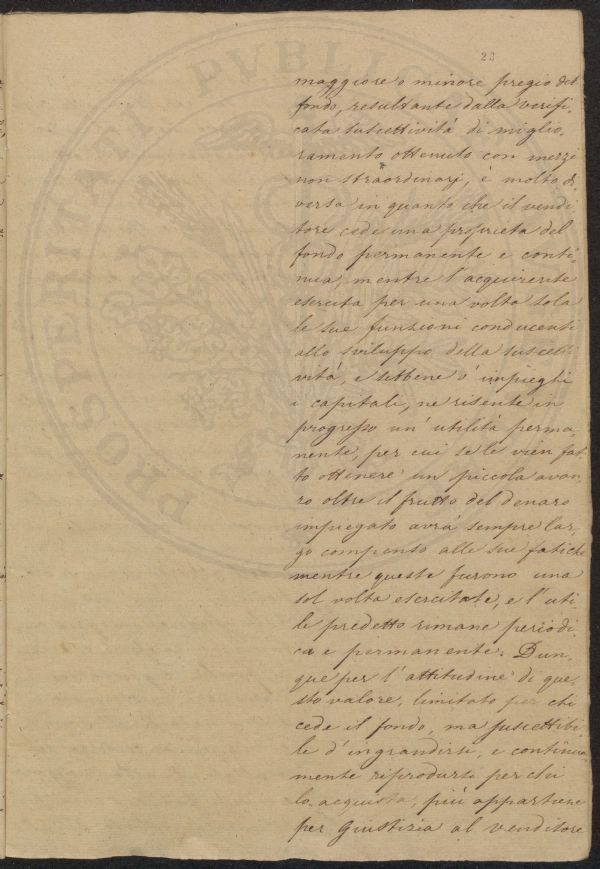 23
maggiore o minore pregio del
fondo, resultante dalla verifi
cata suscettività di miglio
ramento ottenuto con mezzi
non straordinarj, è molto di
versa in quanto che il vendi
tore cede una proprietà del
fondo permanente e conti
nua, mentre l'acquirente
esercita per una volta sola
le sue funzioni conducenti
allo sviluppo della suscetti
vità, e sebbene v'impieghi
i capitali, ne risente in
progresso un'utilità perma
nente, per cui se le vien fat
to ottenere un piccolo avan
zo oltre il frutto del denaro
impiegato avrà sempre lar
go compenso alle sue fatiche
mentre queste furono una
sol volta esercitate, e l'uti
le predetto rimane periodi
ca e permanente. Dun
que per l'attitudine di que
sto valore, limitato per chi
cede il fondo, ma suscettibi
le d'ingrandirsi, e continua
mente riprodursi per chi
lo acquista, più appartiene
per giustizia al venditore
PROSPERITATI PVBLICAE